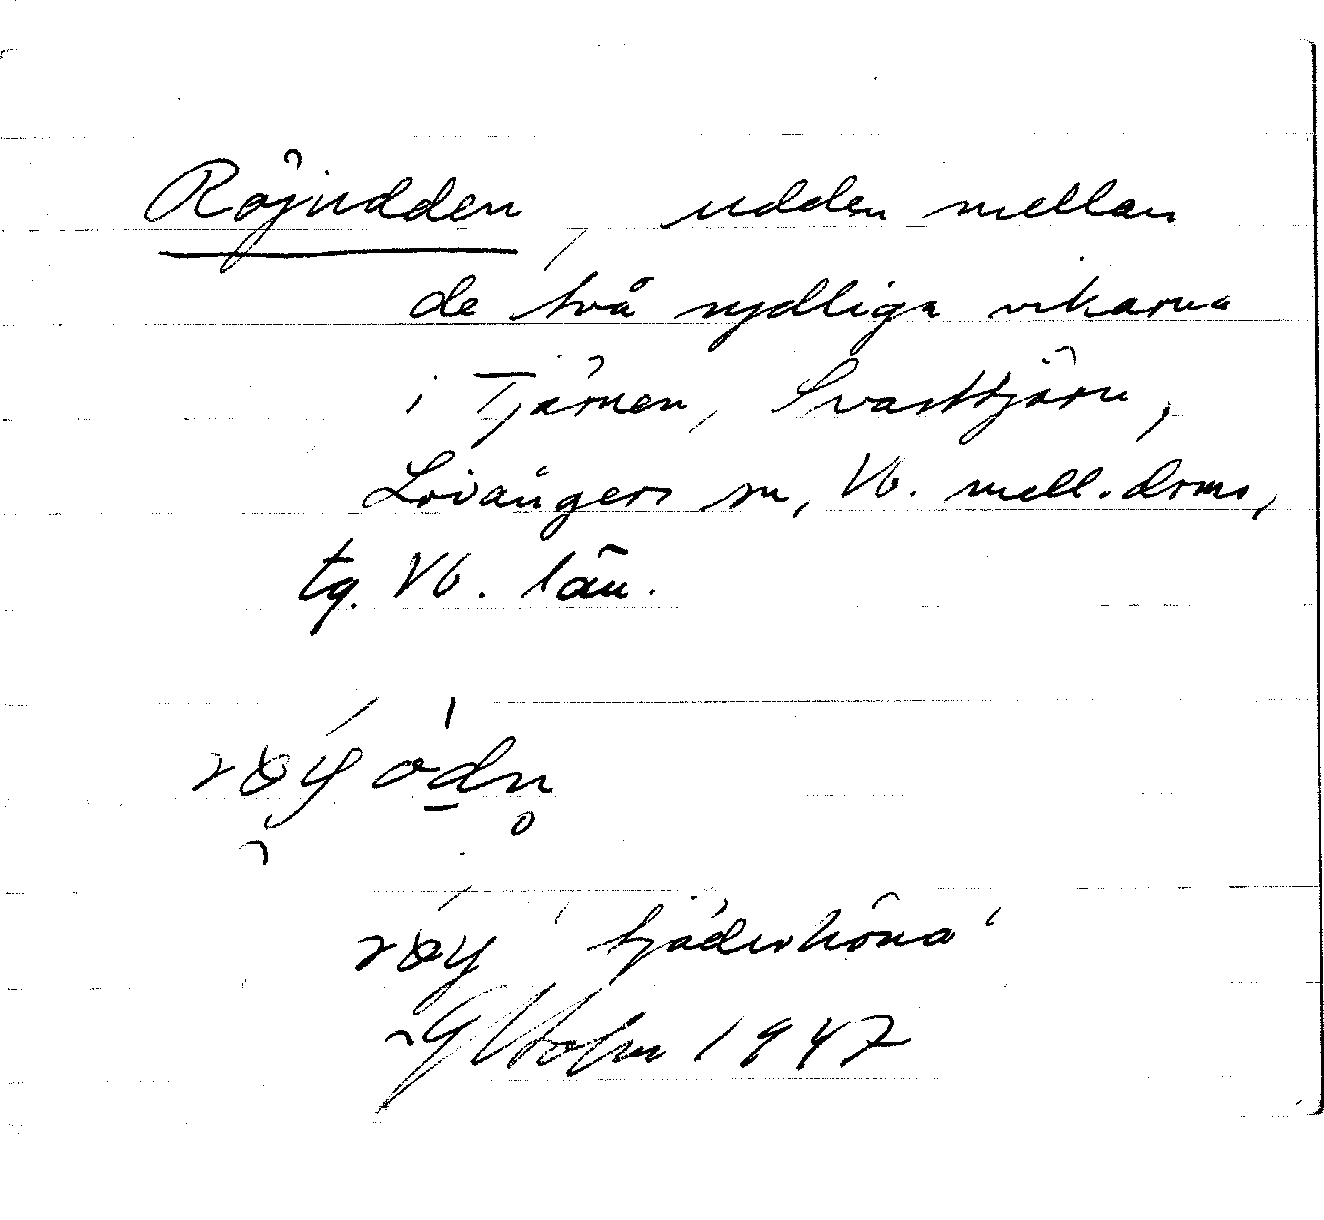 Röjudden, udden mellan
de två sydliga vikarna
i Tjärnen, Svarttjärn,
Lövångers sn, Vb. mell. doms,
tg. Vb. län.
röy ‘tjäderhöna’
1947